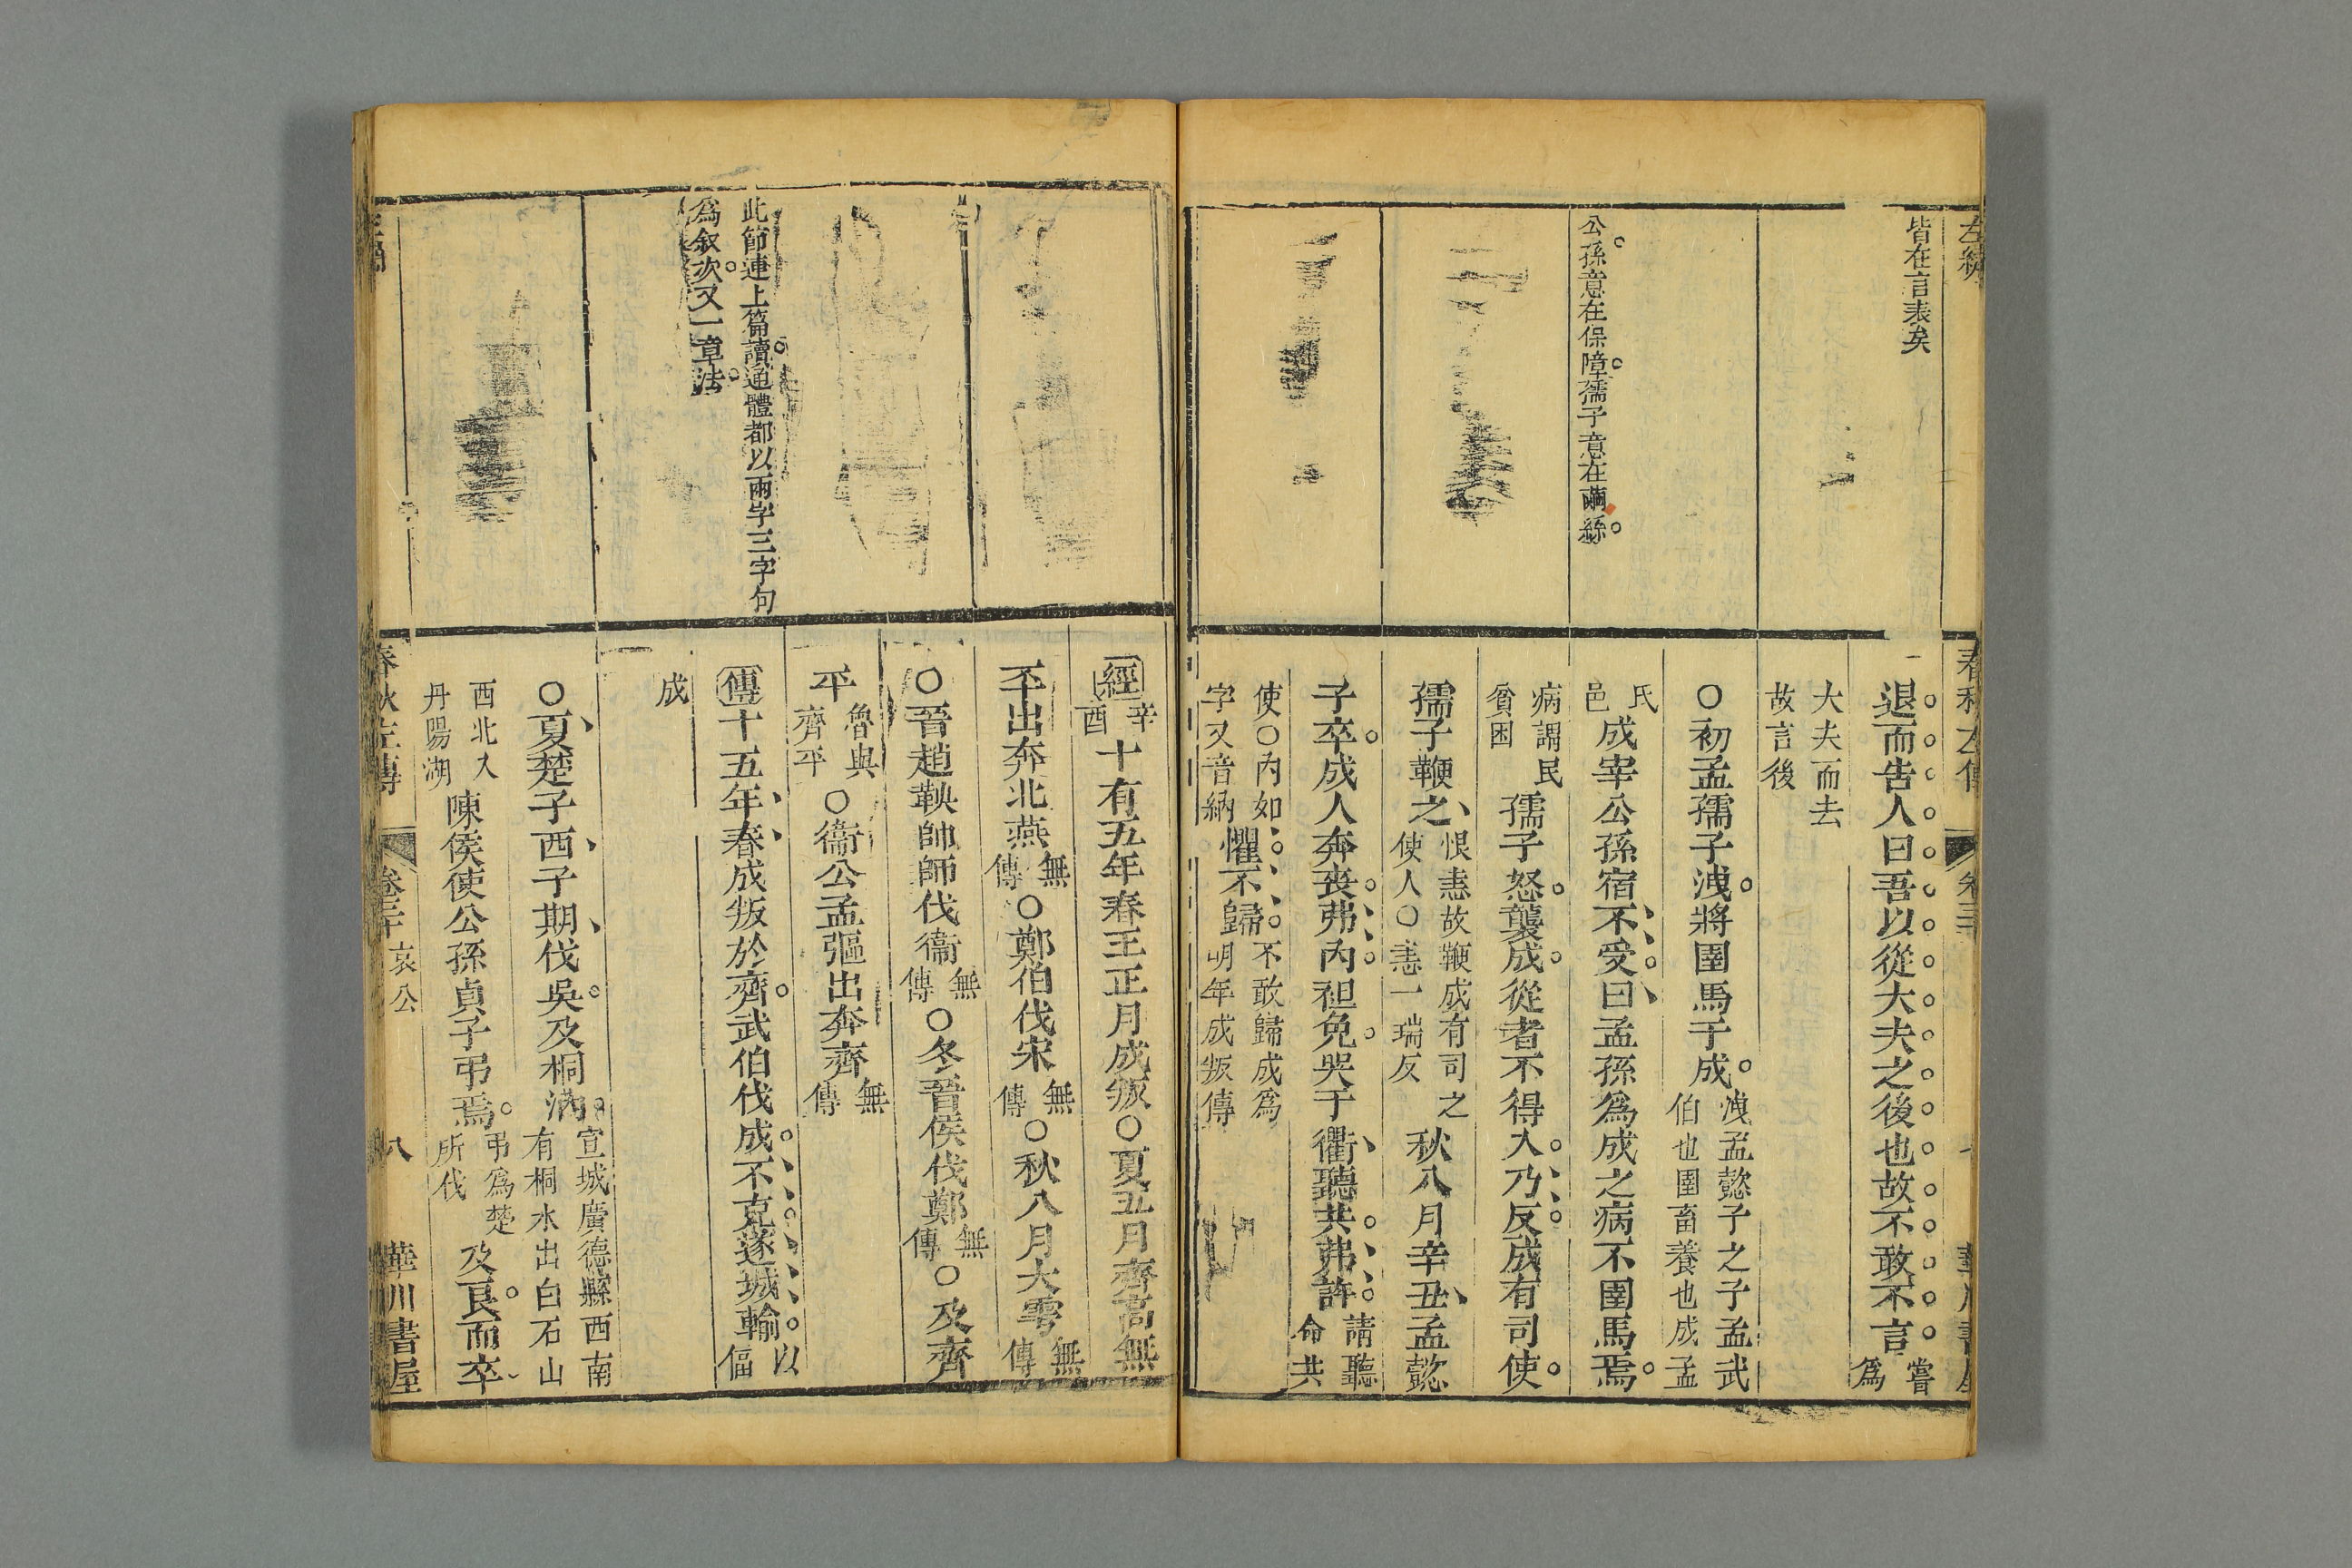 左繡
皆在言表矣
公孫意在保障孺子意在繭絲
春秋左傳
卷三十
退而告人曰吾以從大夫之後也故不敢不言嘗爲
大夫而去
故言後
○初孟孺子洩將圉馬于成洩孟懿子之子孟武
伯也圉畜養也成孟
氏
邑成宰公孫宿不受曰孟孫爲成之病不圉馬焉
病謂民
貧困孺子怒襲成從者不得入乃反成有司使
孺子鞭之恨恚故鞭成有司之
使人○恚一瑞反秋八月辛丑孟懿
子卒成人奔喪弗內袒免哭于衢聽共弗許請聽
命共
使○內如
字又音納懼不歸不敢歸成爲
明年成叛傳
此節連上篇讀通體都以兩字三字句
爲叙次又一章法
經辛
酉十有五年春王正月成叛○夏五月齊高無
㔻出奔北燕無
傳○鄭伯伐宋無
傳○秋八月大雩無
傳
○晉趙鞅帥師伐衞無
傳○冬晉侯伐鄭無
傳○及齊
平魯與
齊平○衞公孟彄出奔齊無
傳
傳十五年春成叛於齊武伯伐成不克遂城輸以
偪
成
○夏楚子西子期伐吳及桐汭宣城廣德縣西南
有桐水出白石山
西北入
丹陽湖陳侯使公孫貞子弔焉弔爲楚
所伐及良而卒
春秋左傳
卷三十
哀公
八
華川書屋